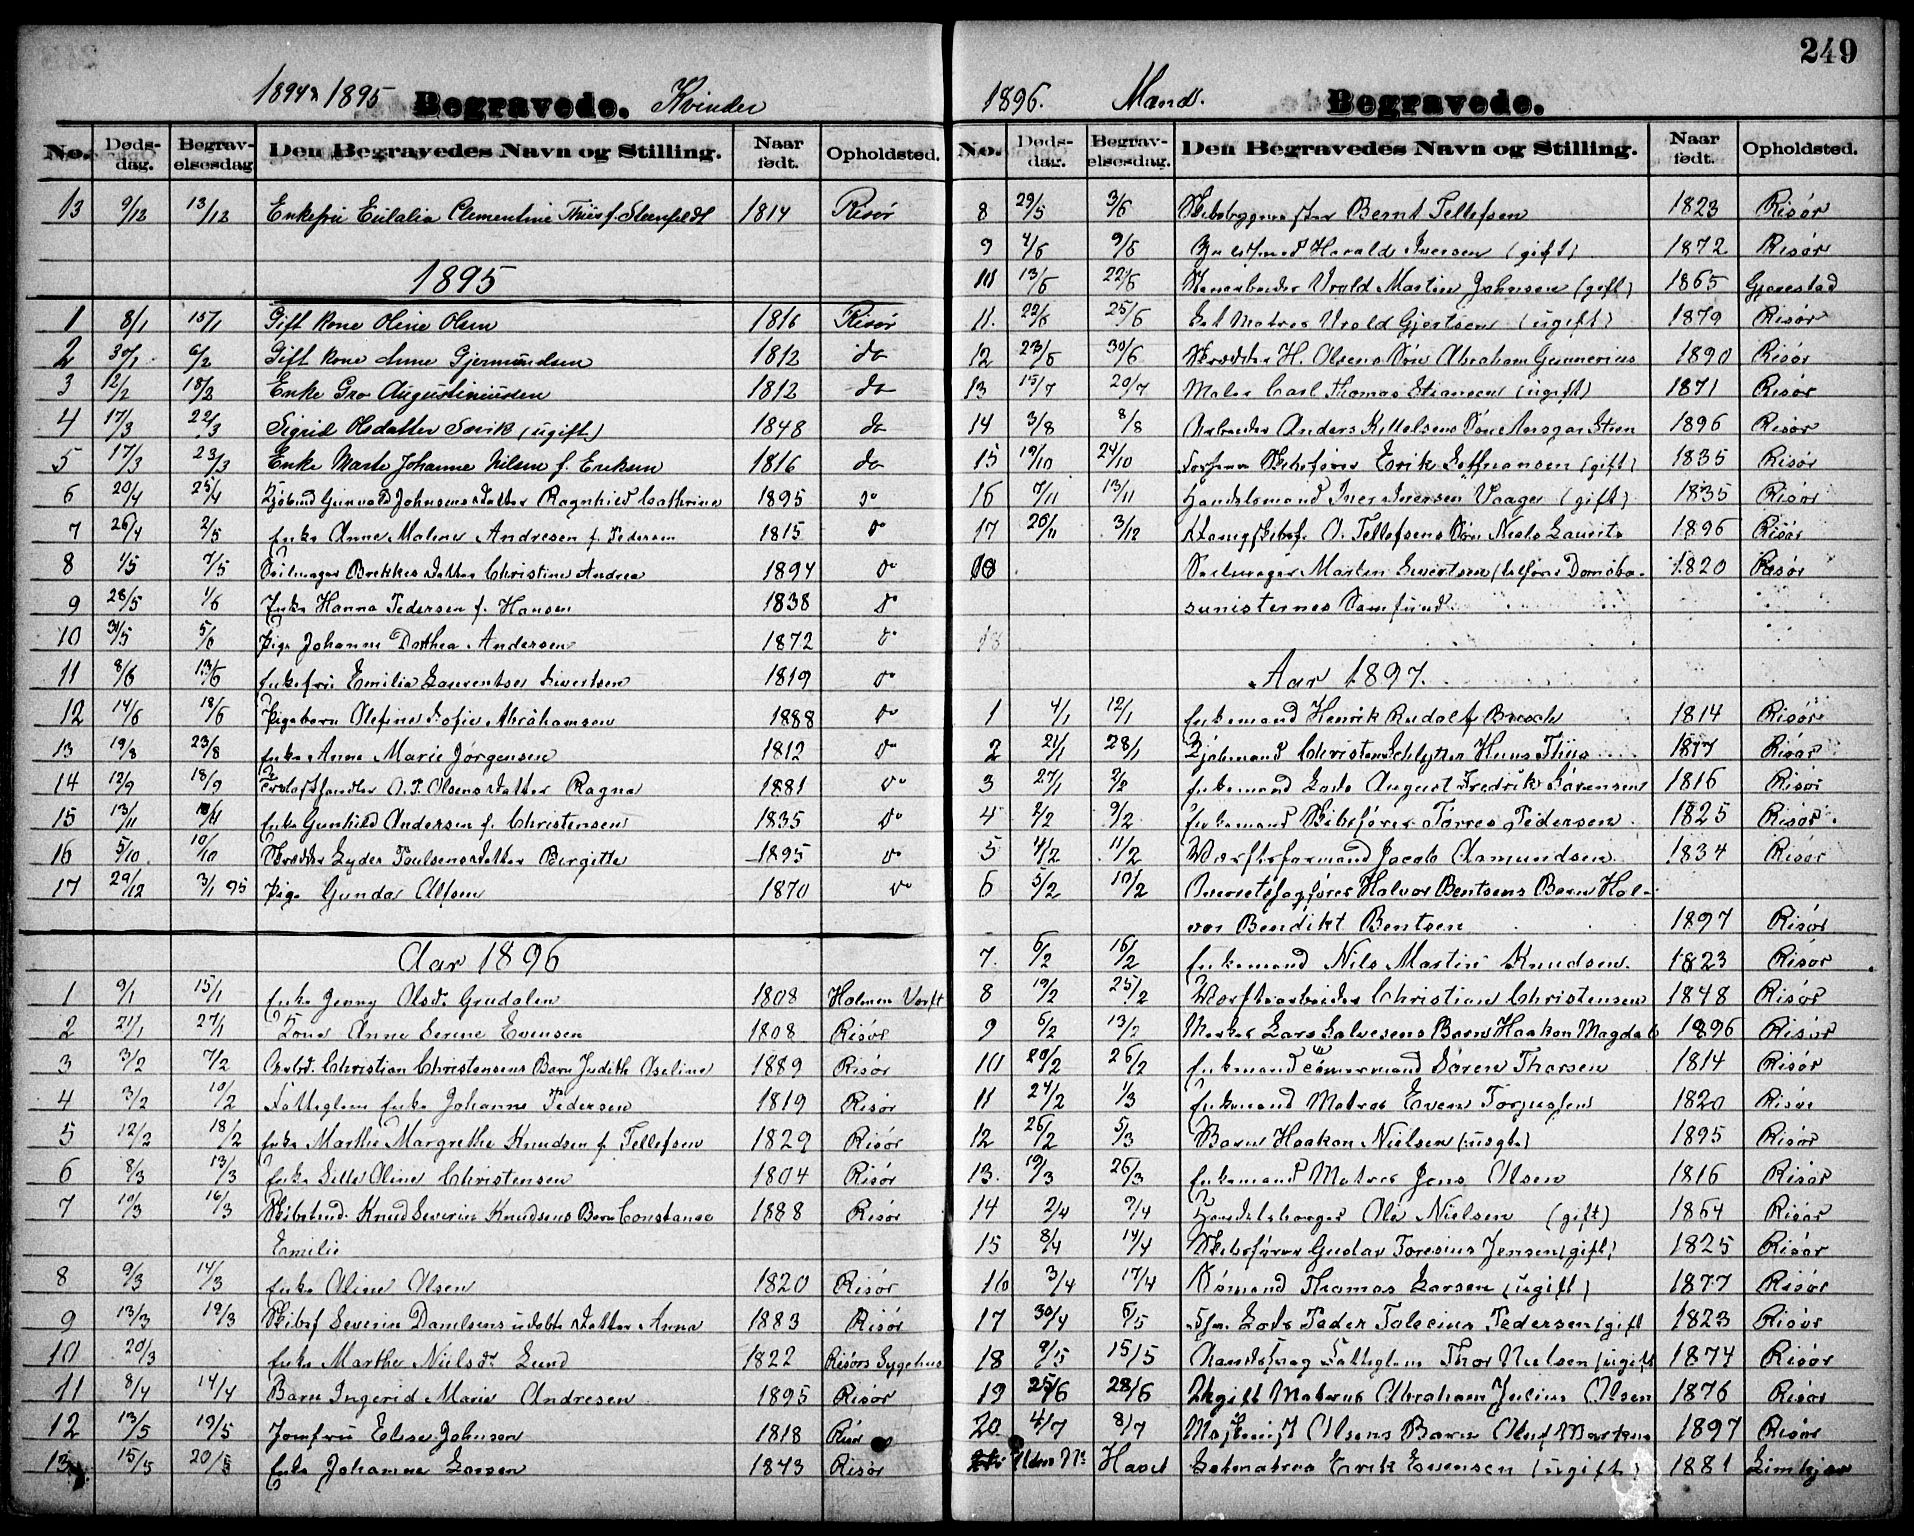 249
1894 & 1895 Begravede. Kvinder
No. Døds-dag. Begrav-elsesdag Den Begravedes Navn og Stilling. Naar født. Opholdsted.
13 9/12 13/12 Enkefru Eulalia Clementine Thiis f. Steenfeldt 1814 Risør
1895
1 8/1 15/1 Gift kone Oline Olsen 1816 Risør
2 30/1 6/2 Gift kone Anne Gjermundsen 1812 do
3 12/2 18/2 Enke Gro Augustiniusen 1812 do
4 17/3 22/3 Sigrid Olsdatter (ugift) 1848 do
5 17/3 23/3 Enke Marte Johanne Nilsen f. Eriksen 1816 do
6 20/4 25/4 Gunvald Johnsens Datter Ragnhild Cathrine 1895 do
7 26/4 2/5 Enke Anne Malene Andresen f. Pedersen 1815 do
8 1/5 7/5 Seilmager Brekkes Datter Christine Andrea 1894 do
9 28/5 1/6 Enke Hanna Pedersen f. Hansen 1838 do
10 31/5 5/6 Pige Johanne Dorthea Andersen 1872 do
11 8/6 13/6 Enkefru Emilie Laurentse Sivertsen 1819 do
12 14/6 18/6 Pigebarn Olefine Sofie Abrahamsen 1888 do
13 19/8 23/8 Enke Anne Marie Jørgensen 1812 do
14 12/9 18/9 O. P. Olsens Datter Ragna 1881 do
15 13/11 Enke Gunhild Andersen f. Christensen 1835 do
16 5/10 10/10 Skrædder Lyder Paulsens Datter Birgitte 1895 do
17 29/12 3/1 95 Pige Gunda Olsen 1870 do
Aar 1896
1 9/1 15/1 Enke Jenny Olsdr Grudalen 1808 Holmen Værft
2 21/1 27/1 Kone Anne Serine Evensen 1808 Risør
3 3/2 7/2 Arbd. Christian Christensens Barn Judith Aseline 1889 Risør
4 3/2 10/2 Fattiglem Enke Johanne Pedersen 1819 Risør
5 12/2 18/2 Enke Marthe Margrethe Knudsen f. Tellefsen 1829 Risør
6 8/3 13/3 Enke Sille Oline Christensen 1804 Risør
7 10/3 16/3 Knud Severin Knudsens Barn Constance 1888 Risør
Emilie
8 9/3 14/3 Enke Oline Olsen 1820 Risør
9 13/3 19/3 Skibsf Severin Danielsens Datter Anna 1883 Risør
10 20/3 Enke Marthe Nielsdr Lund 1822 Risørs Sygehus
11 8/4 14/4 Barn Ingerid Marie Andresen 1895 Risør
12 13/5 19/5 Jomfru Elise Johnsen 1818 Risør
13 15/5 20/5 Enke Johanne Larsen 1843 Risør
1896. Mænd. Begravede.
No. Døds-dag. Begrav-elsesdag. Den Begravedes Navn og Stilling. Naar født. Opholdsted.
8 29/5 3/6 Skibsbygmester Bernt Tellefsen 1823 Risør
9 4/6 9/6 Harald Iversen (gift) 1872 Risør
10 13/6 22/6 Stenarbeider Vrold Martin Johnsen (gift) 1865 Gjerestad
11. 22/6 25/6 Let Matros Vrold Gjertsen (ugift) 1879 Risør
12 23/6 30/6 Skrædder H. Olsens Søn Abraham Gunnerius 1890 Risør
13 15/7 20/7 Maler Carl Thomas Stiansen (ugift) 1871 Risør
14 3/8 8/8 Arbeider Anders Kittelsens Søn Ansgar Steen 1896 Risør
15 19/10 24/10 Skibsfører Erik (gift) 1835 Risør
16 7/11 13/11 Handelsmand Iver Iversen Vaager (gift) 1835 Risør
17 26/11 3/12 O. Tellefsens Søn Niels Laurits 1896 Risør
18 Seilmager Martin Sivertsen 1820 Risør
Samfund
18
Aar 1897.
1 4/1 12/1 Enkemand Henrik Rudolf Broch 1814 Risør
2 21/1 28/1 Kjøbmand Christen Schlytter Huus Thiis 1877 Risør
3 27/1 2/2 Enkemand Lods August Fredrik Sørensen 1816 Risør
4 2/2 9/2 Enkemand Skibsfører Torres Pedersen 1825 Risør
5 4/2 11/2 Værftsformand Jacob Aamundsen 1834 Risør
6 5/2 10/2 Overretssagfører Halvor Bentsens Barn Hal-
vor Bendikt Bentsen 1897 Risør
7. 6/2 16/2 Enkemand Nils Martin Knudsen. 1823 Risør
8 19/2 25/2 Værftsarbeider Christian Christensen 1848 Risør
9 6/2 13/2 Lars Salvesens Barn Haakon 1896 Risør
10 20/2 26/2 Enkemand Tømmermand Søren Thorsen 1814 Risør
11 24/2 1/3 Enkemand Matros Even Torjusen 1820 Risør
12 26/2 5/3 Barn Haakon Nielsen 1895 Risør
13. 19/3 26/3 Enkemand Matros Jens Olsen 1816 Risør
14 2/4 9/4 Handelsborger Ole Nielsen (gift) 1864 Risør
15 8/4 14/4 Skibsfører Gustav Toresius Jensen (gift) 1825 Risør
16 3/4 17/4 Sømand Thomas Larsen (ugift) 1877 Risør
17 30/4 6/5 Lods Peder Pedersen (gift 1823 Risør
18 9/5 15/5 Fattiglem Thor Nielsen (ugift 1874 Risør
19 25/6 28/6 Ugift Matros Abraham Julius Olsen 1876 Risør
20. 4/7 8/7 Maskinist Olsens Barn Oluf 1897 Risør
Uden No Havet Letmatros Erik Evensen (ugift) 1881